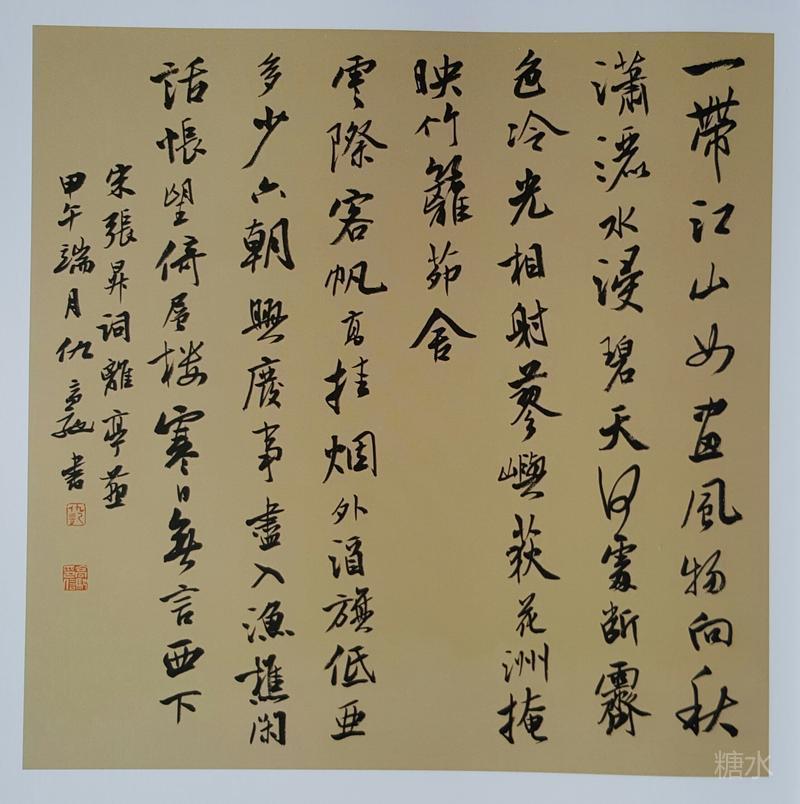 一帶江山如畫風物向秋
瀟灑水浸碧天何處斷霽
色冷光相射蓼嶼荻花洲掩
映竹籬茆舍
雲際客帆高挂烟外酒旗低亞
多少六朝興廢事盡入漁樵閑
話悵望倚層楼寒日無言西下
宋張昇詞離亭燕
甲午端月仇高馳書
糖水